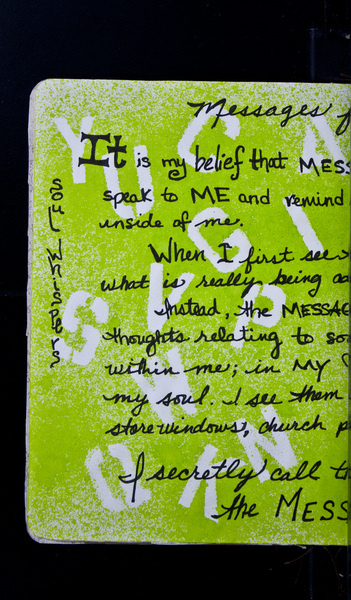 Messages f
It is my belief that MESS
speak to ME and remind
inside of me.
When I first see
what is really being
Instead, the MESSAG
thoughts relating to so
within me; in MY
my soul. I see them
store windows, church p
I secretly call th
the MESS
Soul Whispers
Y U C A
G I
S L P
W
Q K N